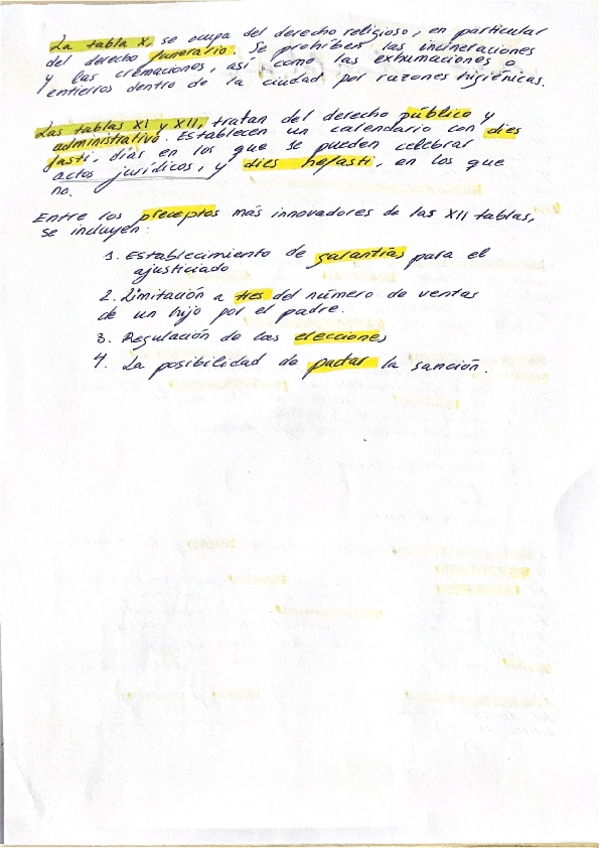 La tabla X, se ocupa del derecho religioso, en particular
del derecho funerario. Se prohiben las incineraciones
y las cremaciones, así como las exhumaciones o
entierros dentro de la ciudad por razones higiénicas.
Las tablas XI y XII, tratan del derecho público y
administrativo. Establecen un calendario con dies
fasti, días en los que se pueden celebrar
actos jurídicos, y dies nefasti, en los que
no.
Entre los preceptos más innovadores de las XII tablas,
se incluyen:
1. Establecimiento de garantías para el
ajusticiado
2. Limitación a tres del número de ventas
de un hijo por el padre.
3. Regulación de las elecciones
4. La posibilidad de pactar la sanción.